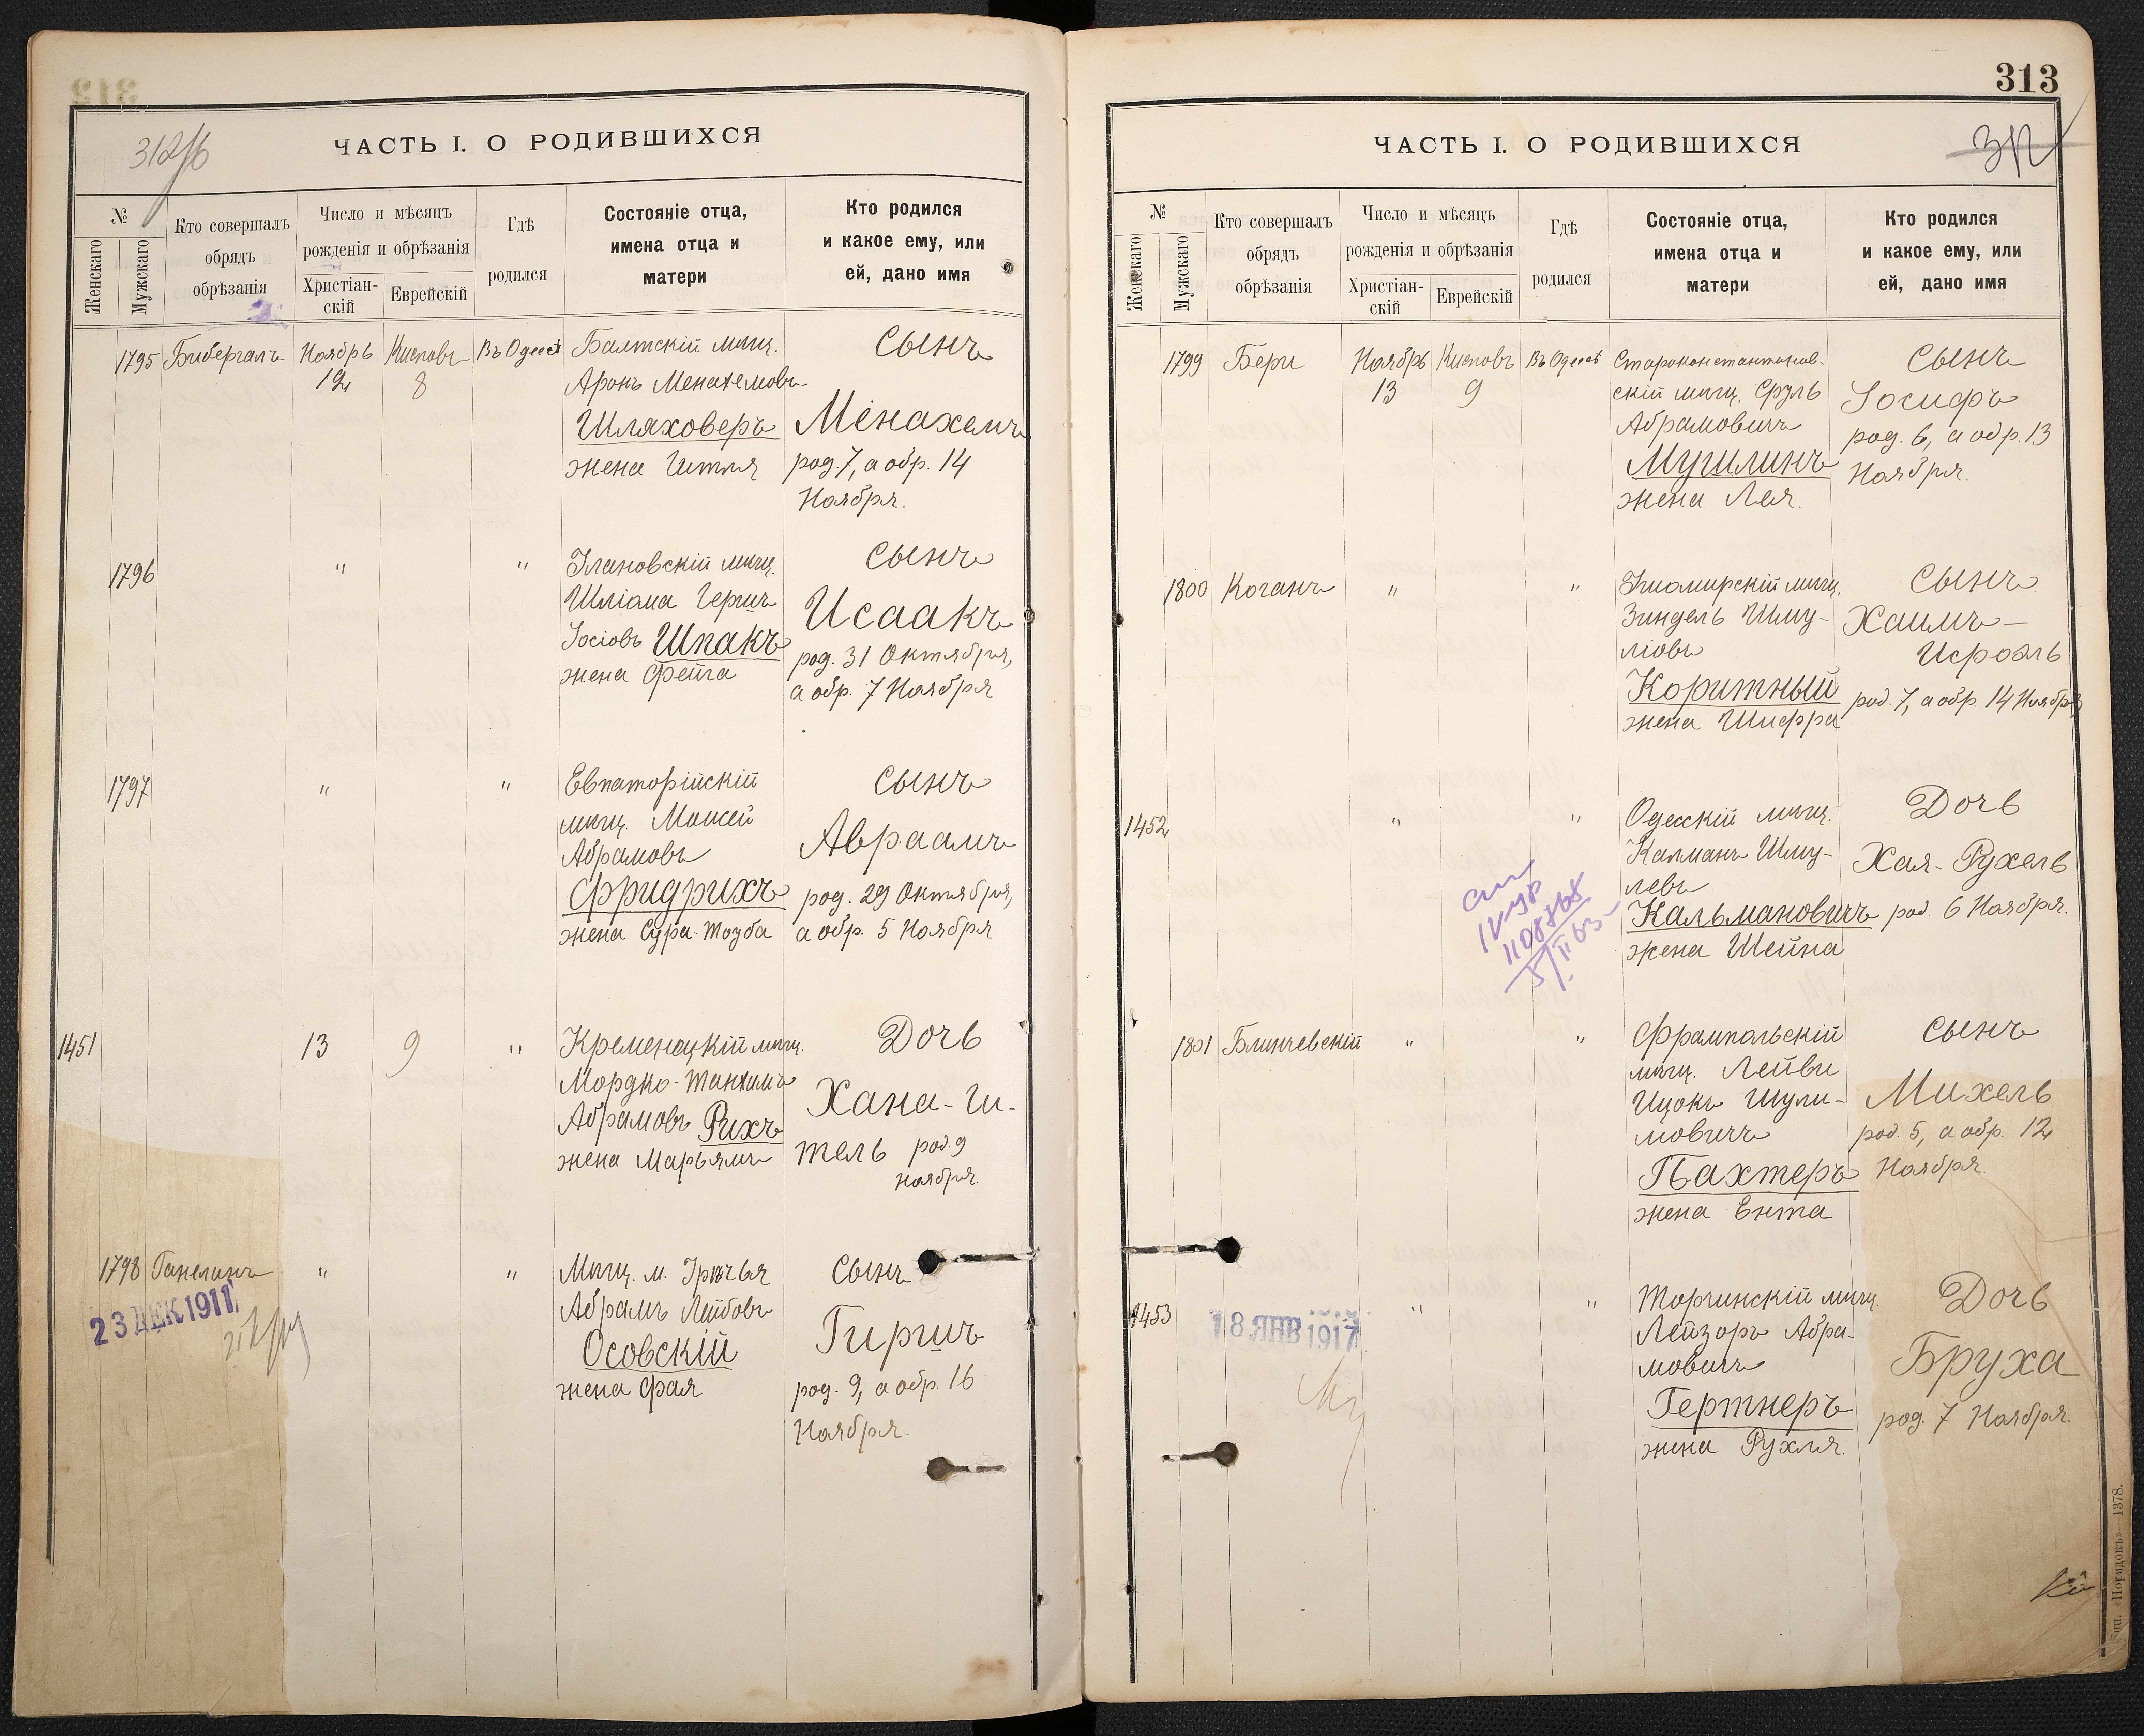 312об
ЧАСТЬ I. О РОДИВШИХСЯ
№
Женскаго
Мужскаго
Кто совершалъ
обрядъ
обрѣзанія
Число и мѣсяцъ
рожденія и обрѣзанія
Христіан-
скій
Еврейскій
Гдѣ
родился
Состояніе отца,
имена отца и
матери
Кто родился
и какое ему, или
ей, дано имя
1795 Бибергалъ Ноябрь Кисловъ Въ Одессѣ Балтскій мѣщ. Сынъ
12 8 Аронъ Менахемовъ
Шляховеръ Менахемъ
жена Гитля род. 7, а обр. 14
Ноября.
1796 " " мѣщ. Сынъ
Шліома Гершъ Исаакъ
Іосіовъ Шпакъ род. 31 Октября,
жена Фейга а обр. 7 Ноября
1797 " " Евпаторійскій Сынъ
мѣщ. Мошей Авраамъ
Абрамовъ
Фридрихъ род. 29 Октября,
жена Сура-Тоуба а обр. 5 Ноября
1451 13 9 " Кременецкій мѣщ. Дочь
Мордко-Танхимъ Хана-Ги-
Абрамовъ Рихъ
жена Марьямъ тель род. 9
Ноября.
1798 Ганелинъ " " Мѣщ. м. Сынъ
23 ДЕК 1911 Абрамъ Лейбовъ Гиршъ
Осовскій
жена Фая род. 9, а обр. 16
Ноября.
313
312
ЧАСТЬ I. О РОДИВШИХСЯ
№
Женскаго
Мужскаго
Кто совершалъ
обрядъ
обрѣзанія
Число и мѣсяцъ
рожденія и обрѣзанія
Христіан-
скій
Еврейскій
Гдѣ
родился
Состояніе отца,
имена отца и
матери
Кто родился
и какое ему, или
ей, дано имя
1799 Бери Ноябрь Кисловъ Въ Одессѣ Староконстантинов- Сынъ
13 9 скій мѣщ. Сруль Іосифъ
Абрамовичъ род. 6, а обр. 13
Мучлинъ Ноября.
жена Лея.
1800 Коганъ " " мѣщ. Сынъ
Зиндель Шму- Хаимъ-
ліовъ Исроэль
Коритный род. 7, а обр. 14 Ноября
жена Шифра
1452 " " Одесскій мѣщ. Дочь
Калманъ Шму- Хая-Рухель
левъ
Кальмановичъ род. 6 Ноября.
жена Шейна
1801 Блинчевскій " " Фрампольскій Сынъ
мѣщ. Лейви Михель
Ицокъ Шули- род. 5, а обр. 12
мовичъ Ноября.
Пахтеръ
жена Ента
1453 18 ЯНВ 1917 " " Торчинскій мѣщ. Дочь
Лейзоръ Абра-
мовичъ Бруха
Гертнеръ род. 7 Ноября.
жена Рухля.
Тип. «Порядокъ»—1378.